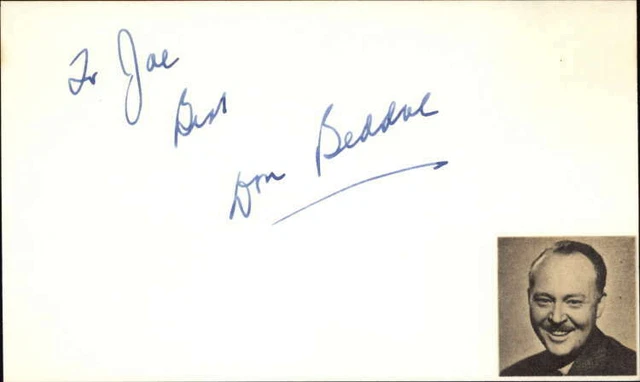 To Joe
Best
Don Beddoe